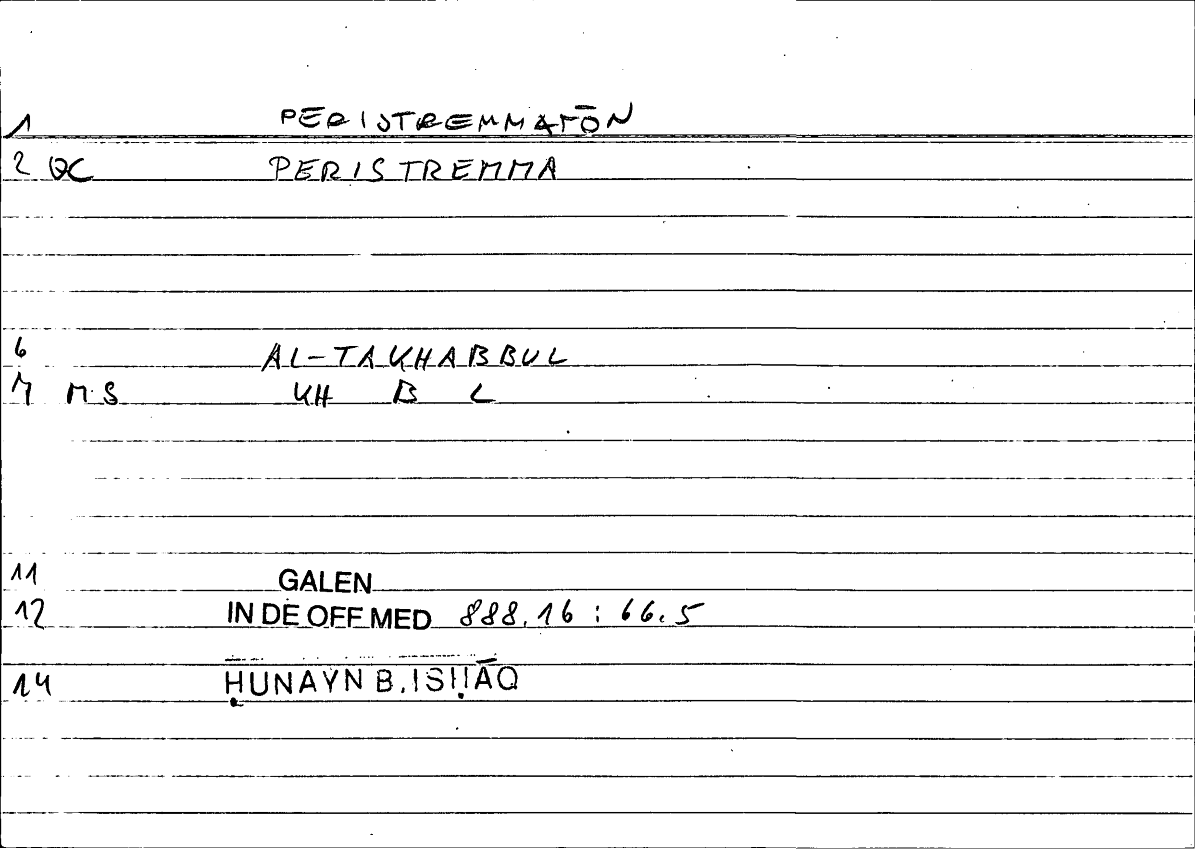 1 PERISTREMMATŌN
2 QC PERISTREMMA
6 AL-TAKHABBUL
7 MS KH B L
11 GALEN
12 IN DE OFF MED 888.16 : 66.5
14 ḤUNAYN B. ISḤĀQ